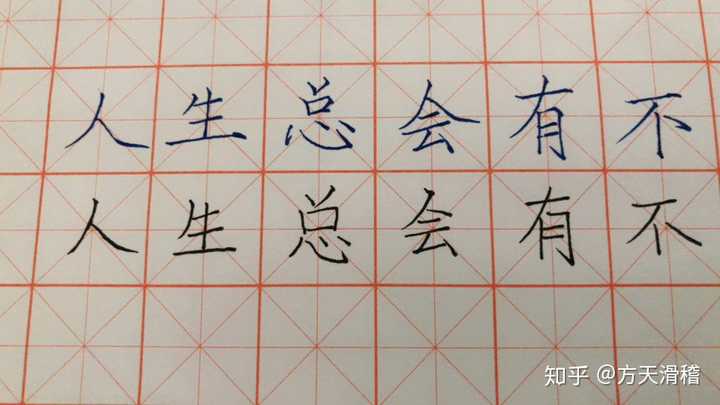 人生总会有不
人生总会有不
知乎 @方天滑稽